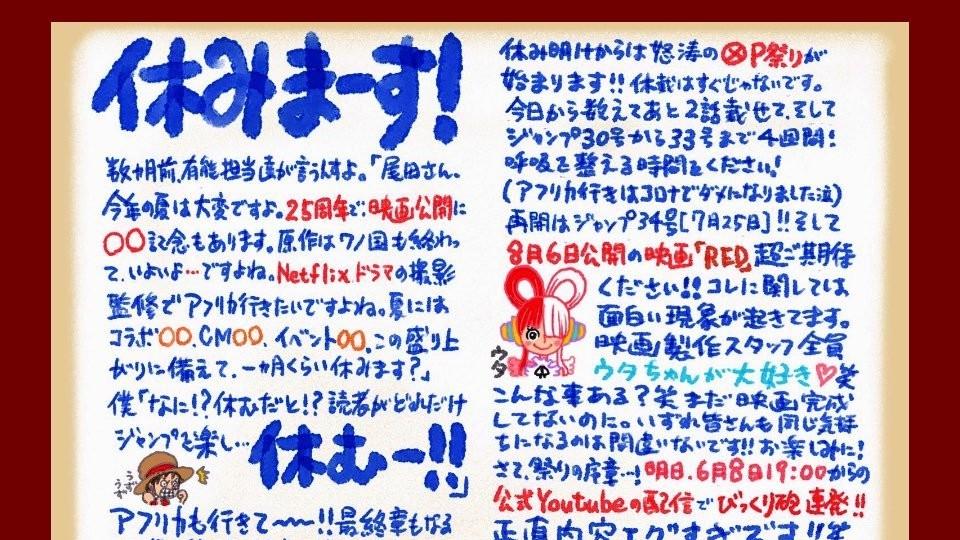 休みまーす!
数か月前、有能担当達が言うんすよ。「尾田さん、
今年の夏は大変ですよ。25周年で、映画公開に
〇〇記念もあります。原作はワノ国も終わっ
て、いよいよ…ですよね。Netflixドラマの撮影
監修でアフリカ行きたいですよね。夏には
コラボ〇〇、CM〇〇、イベント〇〇、この盛り上
がりに備えて、一ヵ月くらい休みます?」
僕「なに!?休むだと!?読者がどれだけ
ジャンプを楽し…休むー!!」
うず
うず
アフリカも行きて〜〜!!最終章もなる
休み明けからは怒涛の ⊗P祭りが
始まります!!休載はすぐじゃないです。
今日から数えてあと2話載せて、そして
ジャンプ30号から33号まで4週間!
呼吸を整える時間をください!
(アフリカ行きはコロナでダメになりました泣)
再開はジャンプ34号[7月25日]!!そして
8月6日公開の映画「RED」超ご期待
ください!!コレに関しては
面白い現象が起きてます。
映画製作スタッフ全員
ウタ
ウタちゃんが大好き♡笑
こんな事ある?笑 まだ映画完成
してないのに。いずれ皆さんも同じ気持
ちになるのは間違いないです!!お楽しみに!
さて、祭りの序章…!明日、6月8日19:00からの
公式Youtubeの配信でびっくり砲連発!!
正直内容エグすぎです!!笑